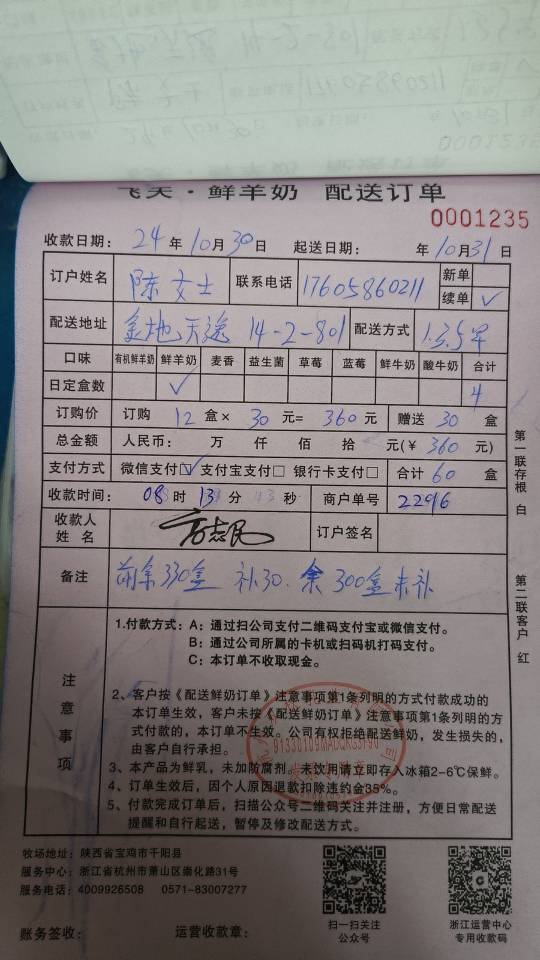 飞天·鲜羊奶 配送订单
0001235
收款日期：24年10月30日 起送日期： 年10月31日
订户姓名 陈女士 联系电话 17605860211 新单
续单 ✓
配送地址 金地天逸 14-2-801 配送方式 1.3.5早
口味 有机鲜羊奶 鲜羊奶 麦香 益生菌 草莓 蓝莓 鲜牛奶 酸牛奶 合计
日定盒数 ✓ 4
订购价 订购 12 盒× 30 元= 360 元 赠送 30 盒
总金额 人民币： 万 仟 佰 拾 元(￥ 360 元)
支付方式 微信支付☑ 支付宝支付□ 银行卡支付□ 合计 60 盒
收款时间： 08 时 13 分 秒 商户单号 2296
收款人姓名 订户签名
备注 前余330盒 补30. 余300盒未补
第一联存根 白
第二联客户 红
注意事项
1.付款方式：A：通过扫公司支付二维码支付宝或微信支付。
B：通过公司所属的卡机或扫码机打码支付。
C：本订单不收取现金。
2、客户按《配送鲜奶订单》注意事项第1条列明的方式付款成功的
本订单生效，客户未按《配送鲜奶订单》注意事项第1条列明的方
式付款的，本订单不生效。公司有权拒绝配送鲜奶，发生损失的，
由客户自行承担。
3、本产品为鲜乳，未加防腐剂。未饮用请立即存入冰箱2-6℃保鲜。
4、订单生效后，因个人原因退款扣除违约金35%。
5、付款完成订单后，扫描公众号二维码关注并注册，方便日常配送
提醒和自行起送，暂停及修改配送方式。
牧场地址：陕西省宝鸡市千阳县
服务中心：浙江省杭州市萧山区崇化路31号
服务电话：4009926508 0571-83007277
扫一扫关注
公众号
浙江运营中心
专用收款码
账务签收： 运营收款章：